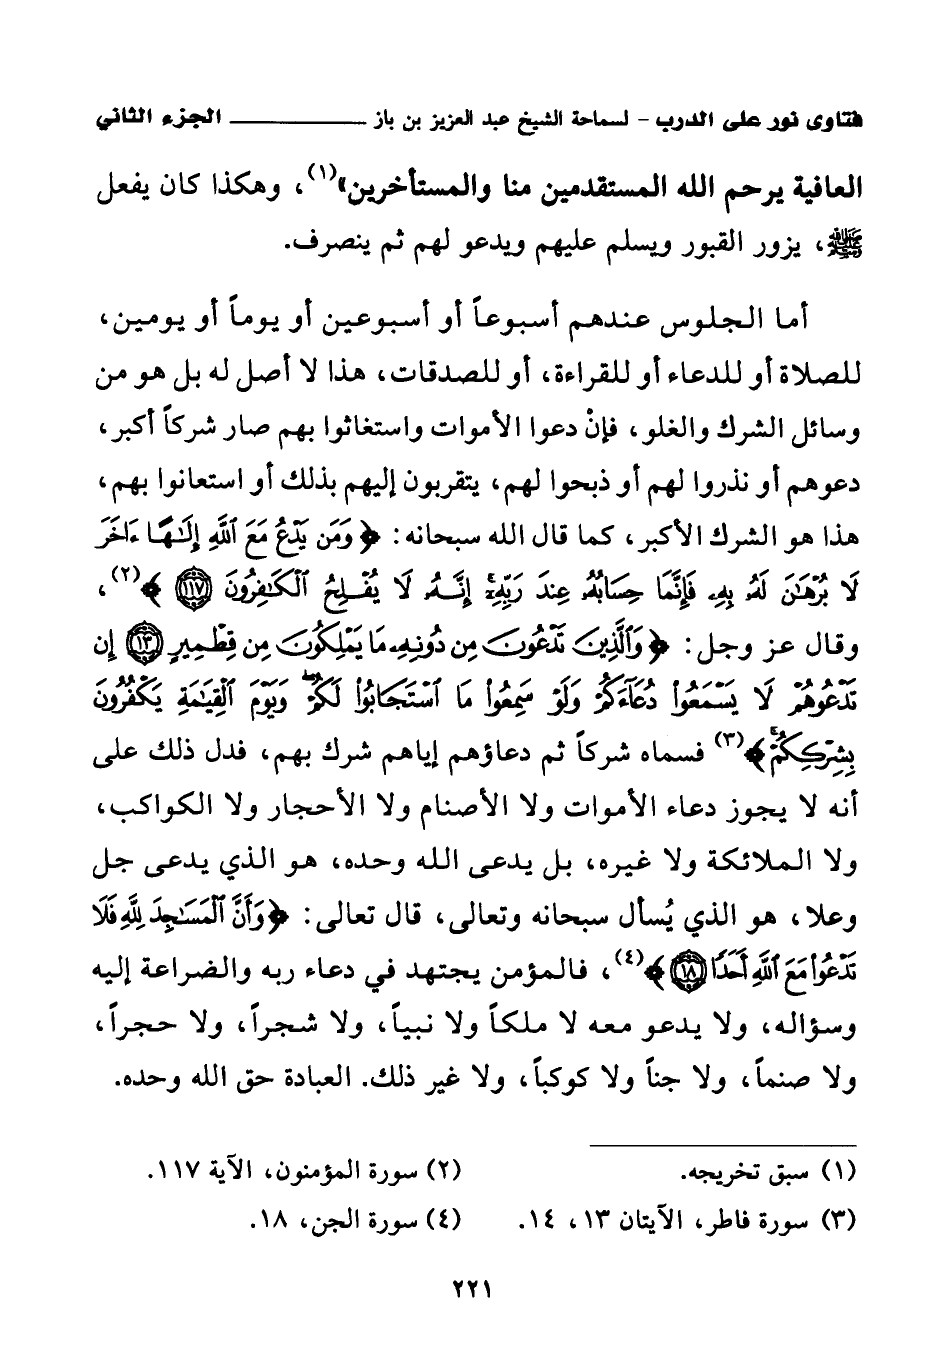 فتاوى نور على الدرب - لسماحة الشيخ عبد العزيز بن باز ـــــــــــ الجزء الثاني
العافية يرحم الله المستقدمين منا والمستأخرين»(١)، وهكذا كان يفعل
ﷺ، يزور القبور ويسلم عليهم ويدعو لهم ثم ينصرف.
أما الجلوس عندهم أسبوعاً أو أسبوعين أو يوماً أو يومين،
للصلاة أو للدعاء أو للقراءة، أو للصدقات، هذا لا أصل له بل هو من
وسائل الشرك والغلو، فإنْ دعوا الأموات واستغاثوا بهم صار شركاً أكبر،
دعوهم أو نذروا لهم أو ذبحوا لهم، يتقربون إليهم بذلك أو استعانوا بهم،
هذا هو الشرك الأكبر، كما قال الله سبحانه: ﴿وَمَن يَدْعُ مَعَ ٱللَّهِ إِلَٰهًا ءَاخَرَ
لَا بُرْهَٰنَ لَهُۥ بِهِۦ فَإِنَّمَا حِسَابُهُۥ عِندَ رَبِّهِۦٓ إِنَّهُۥ لَا يُفْلِحُ ٱلْكَٰفِرُونَ ١١٧﴾(٢)،
وقال عز وجل: ﴿وَٱلَّذِينَ تَدْعُونَ مِن دُونِهِۦ مَا يَمْلِكُونَ مِن قِطْمِيرٍ ١٣ إِن
تَدْعُوهُمْ لَا يَسْمَعُوا۟ دُعَآءَكُمْ وَلَوْ سَمِعُوا۟ مَا ٱسْتَجَابُوا۟ لَكُمْ ۖ وَيَوْمَ ٱلْقِيَٰمَةِ يَكْفُرُونَ
بِشِرْكِكُمْ ۚ﴾(٣) فسماه شركاً ثم دعاؤهم إياهم شرك بهم، فدل ذلك على
أنه لا يجوز دعاء الأموات ولا الأصنام ولا الأحجار ولا الكواكب،
ولا الملائكة ولا غيره، بل يدعى الله وحده، هو الذي يدعى جل
وعلا، هو الذي يُسأل سبحانه وتعالى، قال تعالى: ﴿وَأَنَّ ٱلْمَسَٰجِدَ لِلَّهِ فَلَا
تَدْعُوا۟ مَعَ ٱللَّهِ أَحَدًا ١٨﴾(٤)، فالمؤمن يجتهد في دعاء ربه والضراعة إليه
وسؤاله، ولا يدعو معه لا ملكاً ولا نبياً، ولا شجراً، ولا حجراً،
ولا صنماً، ولا جناً ولا كوكباً، ولا غير ذلك. العبادة حق الله وحده.
(١) سبق تخريجه. (٢) سورة المؤمنون، الآية ١١٧.
(٣) سورة فاطر، الآيتان ١٣، ١٤. (٤) سورة الجن، ١٨.
٢٢١